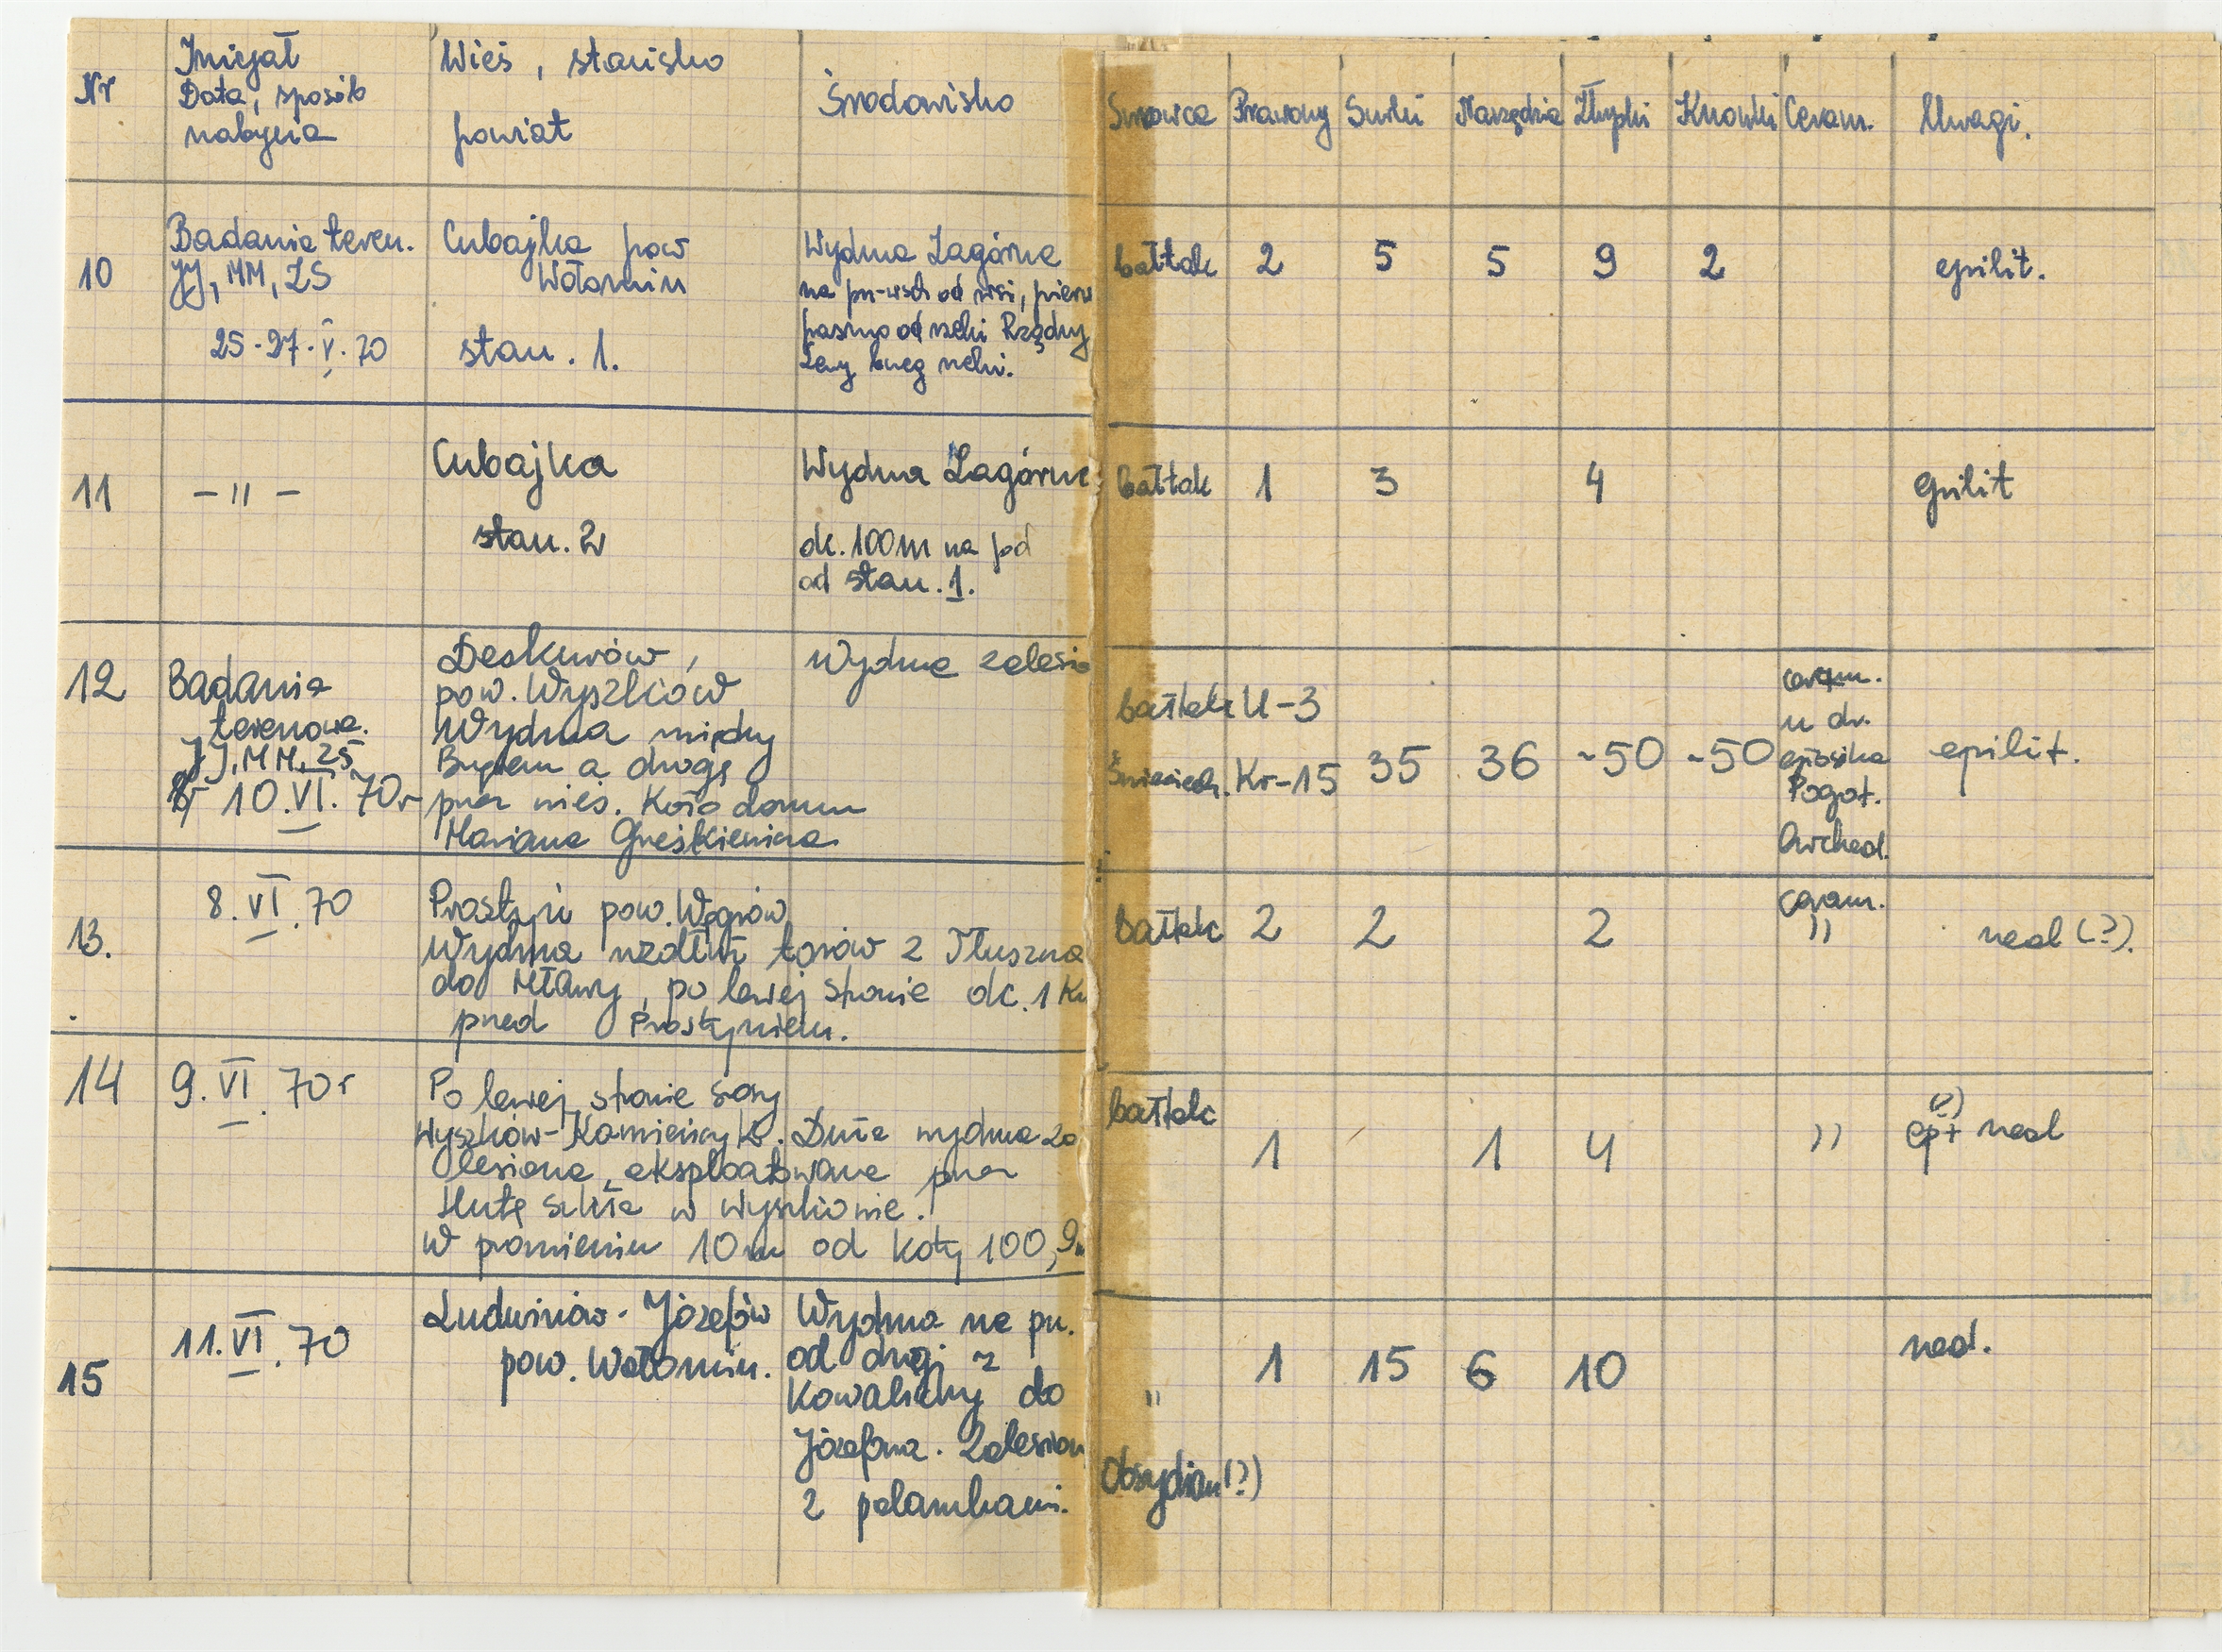 Nr
Inicjał
Data, sposób
nabycia
Wieś, stanisko
powiat
Środowisko
Surowce
Prawony
Surki
Narzędzia
Zbyski
Knowki
Ceram.
Uwagi.
10
Badania teren.
JJ, MM, ZS
25-27.V.70
Cubajka pow
Wołomin
stan. 1.
Wydma Zagórne
na pn-wsch od wsi, pierw
pasmo od rzeki Rządzy
Lewy brzeg rzeki.
bałtak
2
5
5
9
2
epilit.
11
- " -
Cubajka
stan. 2
Wydma Zagórne
ok. 100m na pd
od stan. 1.
bałtak
1
3
4
epilit
12
Badania
terenowe.
JJ, MM, ZS
10.VI.70r
Deskurów,
pow. Wyszków
Wydma między
Bugiem a drogą
przez wieś. Koło domu
Mariana Greśkiewicza
Wydma zalesio
bałtak U-3
Świeciech. Kr-15
35
36
~50
~50
ceram.
u dr.
Pogot.
Archeol.
epilit.
13.
8.VI.70
Prostyń pow. Węgrów
Wydma wzdłuż torów z Tłuszcza
do Mławy, po lewej stronie ok. 1 Km
przed Prostyniem.
Bałtak
2
2
2
ceram.
"
neol (?).
14
9.VI.70r
Po lewej stronie szosy
Wyszków-Kamieńczyk. Duża wydma za
lesiona, eksploatowana przez
Hutę szkła w Wyszkowie.
W promieniu 10m od koty 100,9m
bałtak
1
1
4
"
(?)
ep+ neol
15
11.VI.70
Ludwinów-Józefów
pow. Wołomin.
Wydma na pn.
od drogi z
Kowalichy do
Józefowa. Zalesion
z polankami.
"
Obsydian(?)
1
15
6
10
neol.